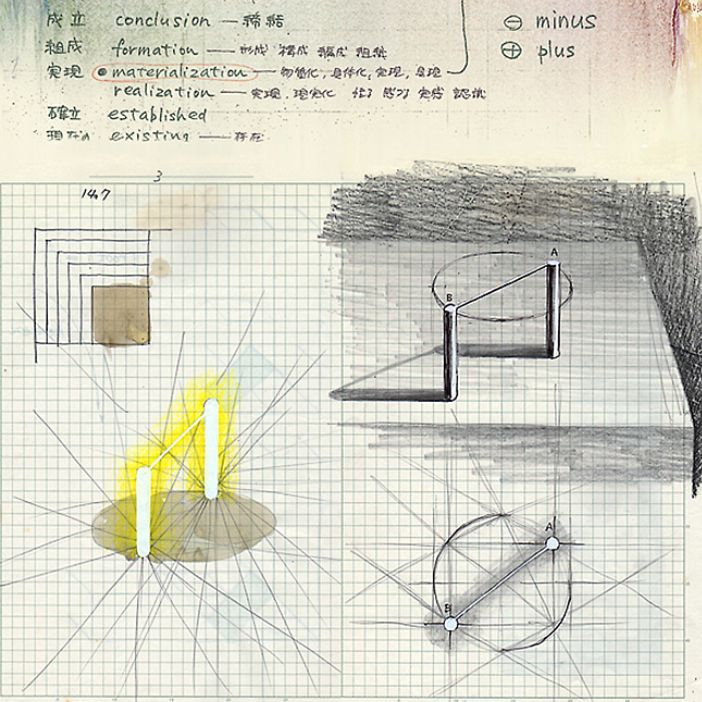 成立 conclusion — 締結
⊖ minus
組成 formation — 形成 構成 編成 組織
⊕ plus
実現 • materialization — 物質化, 具体化, 実現, 具現
realization — 実現, 現実化 悟り 感得 完成 認識
確立 established
existing — 存在
3
14.7
A
B
A
B